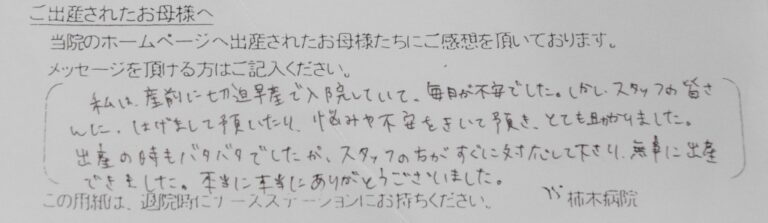 ご出産されたお母様へ
当院のホームページへ出産されたお母様たちにご感想を頂いております。
メッセージを頂ける方はご記入ください。
私は、産前に切迫早産で入院していて、毎日が不安でした。しかし、スタッフの皆さ
んに、はげまして頂いたり、悩みや不安をきいて頂き、とても助かりました。
出産の時もバタバタでしたが、スタッフの方がすぐに対応して下さり、無事に出産
できました。本当に本当にありがとうございました。
この用紙は、退院時にナースステーションにお持ちください。 柿木病院